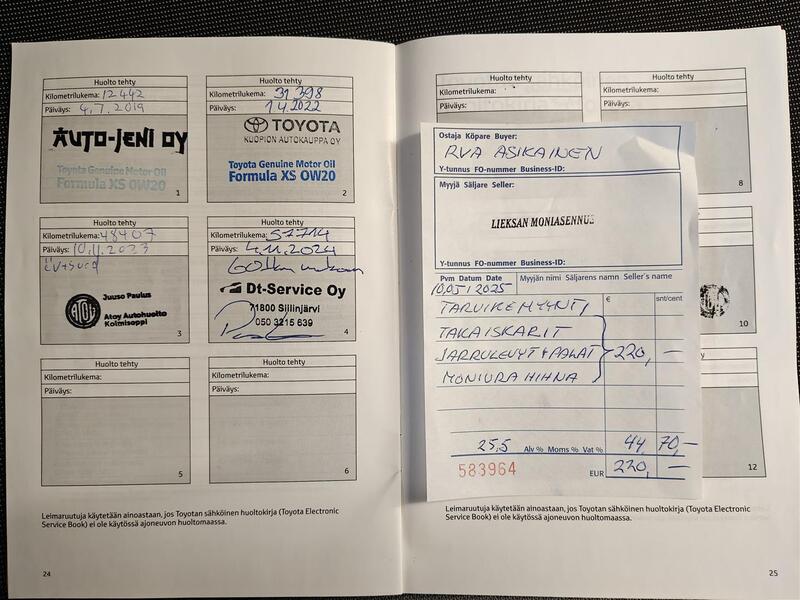 Huolto tehty
Kilometrilukema: 12 442
Päiväys: 4.7.2019
AUTO-JENI OY
Toyota Genuine Motor Oil
Formula XS 0W20
1
Huolto tehty
Kilometrilukema: 31 398
Päiväys: 1.4.2022
TOYOTA
KUOPION AUTOKAUPPA OY
Toyota Genuine Motor Oil
Formula XS 0W20
2
Huolto tehty
Kilometrilukema: 48407
Päiväys: 10.11.2023
Juuso Paulus
Atoy Autohuolto
Kolmisoppi
3
Huolto tehty
Kilometrilukema: 57714
Päiväys: 4.11.2024
Dt-Service Oy
71800 Siilinjärvi
050 3215 639
4
Huolto tehty
Kilometrilukema:
Päiväys:
5
Huolto tehty
Kilometrilukema:
Päiväys:
6
Leimaruutuja käytetään ainoastaan, jos Toyotan sähköinen huoltokirja (Toyota Electronic
Service Book) ei ole käytössä ajoneuvon huoltomaassa.
24
Huolto tehty
Kilometrilukema:
Päiväys:
Huolto tehty
Kilometrilukema:
Päiväys:
8
10
12
Ostaja Köpare Buyer:
RVA ASIKAINEN
Y-tunnus FO-nummer Business-ID:
Myyjä Säljare Seller:
LIEKSAN MONIASENNUS
Y-tunnus FO-nummer Business-ID:
Pvm Datum Date Myyjän nimi Säljarens namn Seller's name
10.05 2025
€ snt/cent
TARVIKEMYYNTI
TAKAISKARIT
JARRULEVYT + PALAT 220,—
MONIURA HIHNA
25,5 Alv % Moms % Vat % 44, 70,—
583964 EUR 220, —
Leimaruutuja käytetään ainoastaan, jos Toyotan sähköinen huoltokirja (Toyota Electronic
Service Book) ei ole käytössä ajoneuvon huoltomaassa.
25